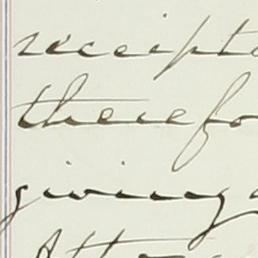 receipt
therefo
giving
Atto